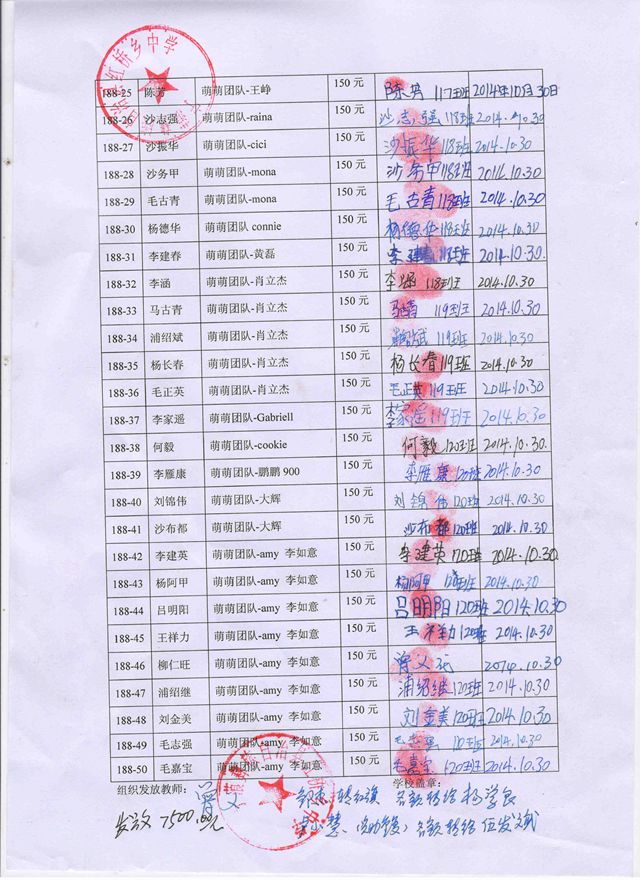 红桥乡中学
188-25 陈芳 萌萌团队-王峥 150 元 陈芳 117班 2014年10月30日
188-26 沙志强 萌萌团队-raina 150 元 沙志强 118班 2014.10.30
188-27 沙振华 萌萌团队-cici 150 元 沙振华 118班 2014.10.30
188-28 沙务甲 萌萌团队-mona 150 元 沙务甲 118班 2014.10.30
188-29 毛古青 萌萌团队-mona 150 元 毛古青 118班 2014.10.30
188-30 杨德华 萌萌团队 connie 150 元 杨德华 118班 2014.10.30
188-31 李建春 萌萌团队-黄磊 150 元 李建春 118班 2014.10.30
188-32 李涵 萌萌团队-肖立杰 150 元 李涵 118班 2014.10.30
188-33 马古青 萌萌团队-肖立杰 150 元 马古青 119班 2014.10.30
188-34 浦绍斌 萌萌团队-肖立杰 150 元 浦绍斌 119班 2014.10.30
188-35 杨长春 萌萌团队-肖立杰 150 元 杨长春 119班 2014.10.30
188-36 毛正英 萌萌团队-肖立杰 150 元 毛正英 119班 2014.10.30
188-37 李家遥 萌萌团队-Gabriell 150 元 李家遥 119班 2014.10.30
188-38 何毅 萌萌团队-cookie 150 元 何毅 120班 2014.10.30.
188-39 李雁康 萌萌团队-鹏鹏 900 150 元 李雁康 120班 2014.10.30
188-40 刘锦伟 萌萌团队-大辉 150 元 刘锦伟 120班 2014.10.30
188-41 沙布都 萌萌团队-大辉 150 元 沙布都 120班 2014.10.30
188-42 李建英 萌萌团队-amy 李如意 150 元 李建英 120班 2014.10.30
188-43 杨阿甲 萌萌团队-amy 李如意 150 元 杨阿甲 120班 2014.10.30
188-44 吕明阳 萌萌团队-amy 李如意 150 元 吕明阳 120班 2014.10.30
188-45 王祥力 萌萌团队-amy 李如意 150 元 王祥力 120班 2014.10.30
188-46 柳仁旺 萌萌团队-amy 李如意 150 元 2014.10.30
188-47 浦绍继 萌萌团队-amy 李如意 150 元 浦绍继 120班 2014.10.30
188-48 刘金美 萌萌团队-amy 李如意 150 元 刘金美 120班 2014.10.30
188-49 毛志强 萌萌团队-amy 李如意 150 元 毛志强 120班 2014.10.30
188-50 毛嘉宝 萌萌团队-amy 李如意 150 元 毛嘉宝 120班 2014.10.30
组织发放教师： 学校盖章：
名额转给杨学良
发放 7500.元 名额转给伍发文武